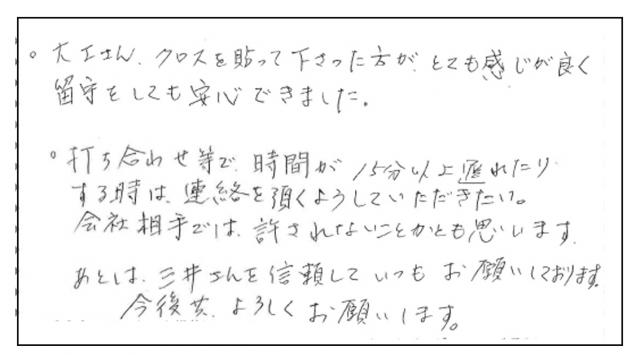 。大工さん、クロスを貼って下さった方が、とても感じが良く
留守をしても安心できました。
。打ち合わせ等で、時間が15分以上遅れたり
する時は、連絡を頂くようしていただきたい。
会社相手では、許されないことかとも思います。
あとは、三井さんを信頼していつもお願いしております。
今後共、よろしくお願いします。